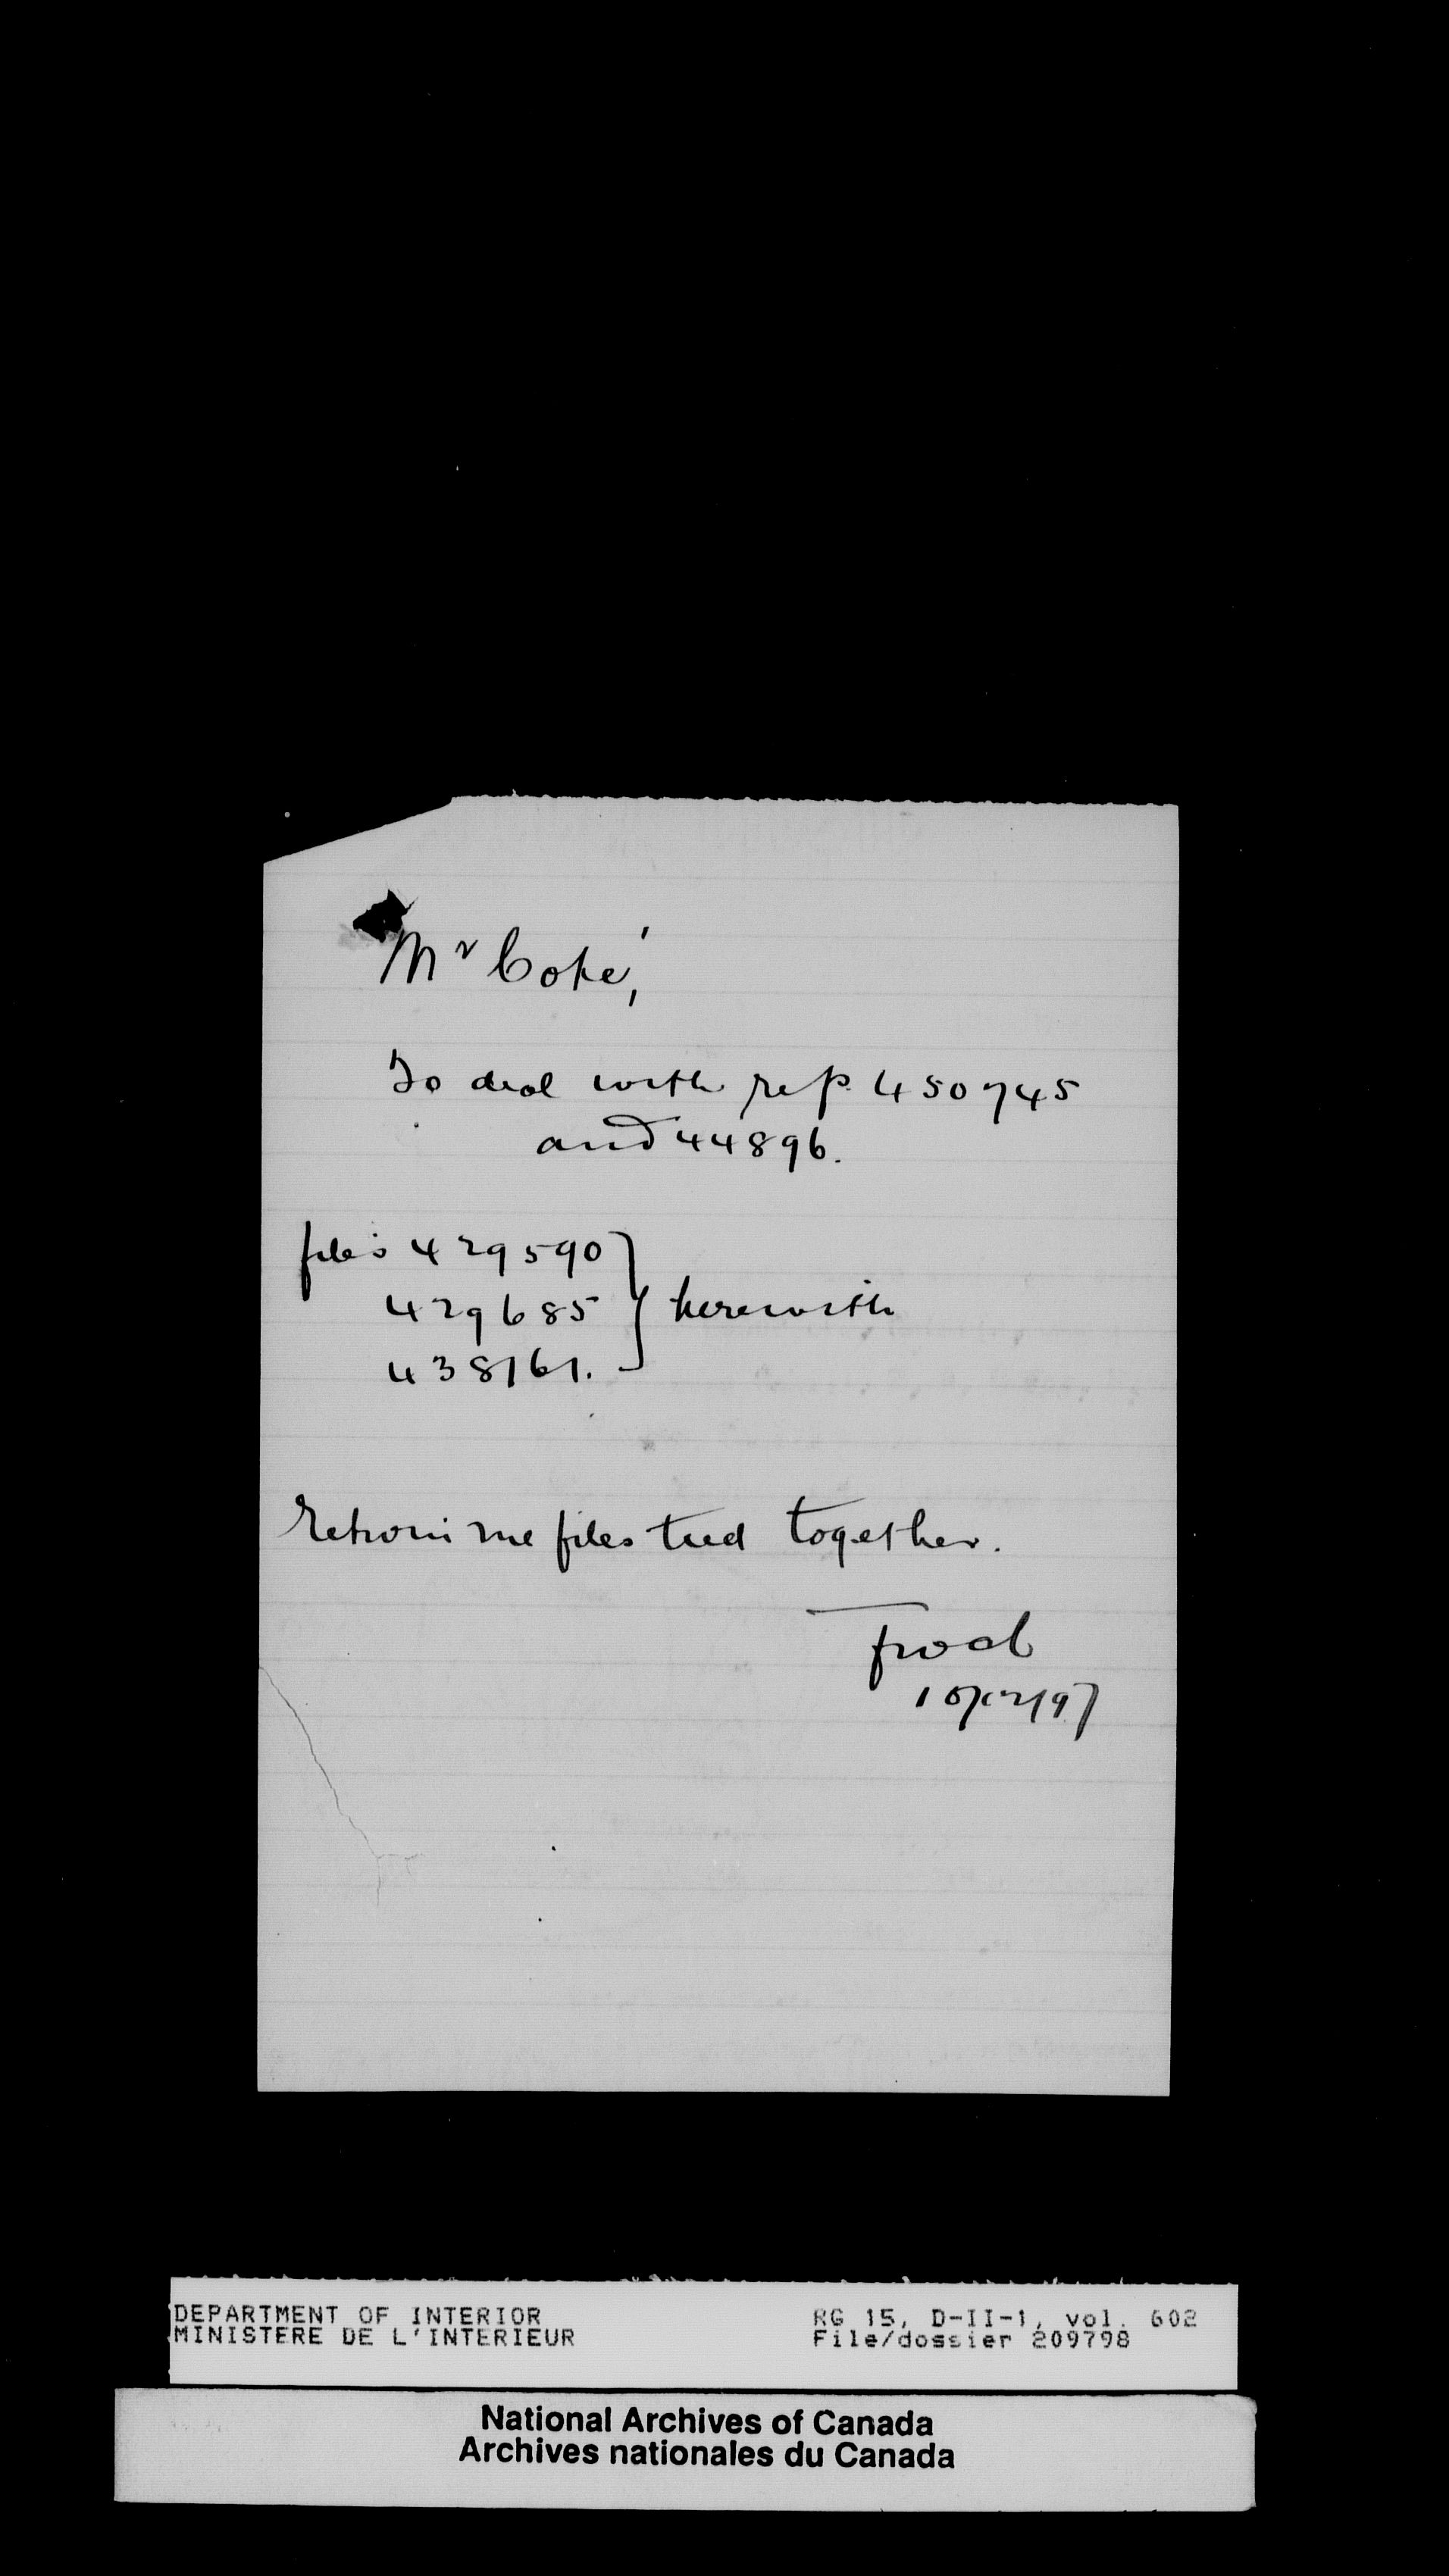 Mr Coté,
To deal with refs. 450745
and 44896.
files 429590
429685 } herewith
438161.
Return me files tied together.
10/12/97
DEPARTMENT OF INTERIOR
MINISTERE DE L'INTERIEUR
RG 15, D-II-1, vol. 602
File/dossier 209798
National Archives of Canada
Archives nationales du Canada